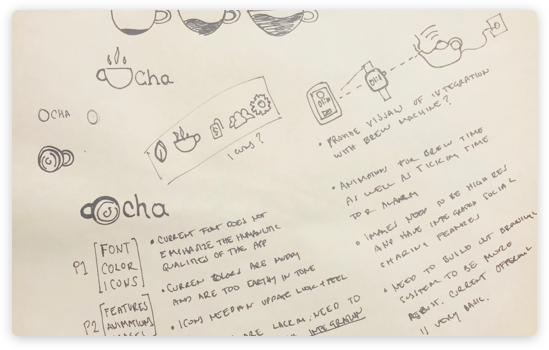 Ocha
OCHA
ICONS?
Ocha
P1
FONT
COLOR
ICONS
• CURRENT FONT DOES NOT
EMPHASIZE THE HUMANISTIC
QUALITIES OF THE APP
• CURREN COLORS ARE MUDDY
AND ARE TOO EARTHY IN TONE
• ICONS NEED AN UPDATE LOOK + FEEL
P2
FEATURES
ANIMATION
ARE LACKIN. NEED TO
INTEGRATION
• PROVIDE VISUAL OF INTEGRATION
WITH BREW MACHINE?
• ANIMATION FOR BREW TIME
AS WELL AS TICKING TIME
FOR ALARM
• IMAGES NEED TO BE HIGH RES
AND HAVE INTEGRATED SOCIAL
SHARING FEATURES
• NEED TO BUILD OUT
SYSTEM TO BE MORE
ROBUST. CURRENT OFFERING
IS VERY BASIC.